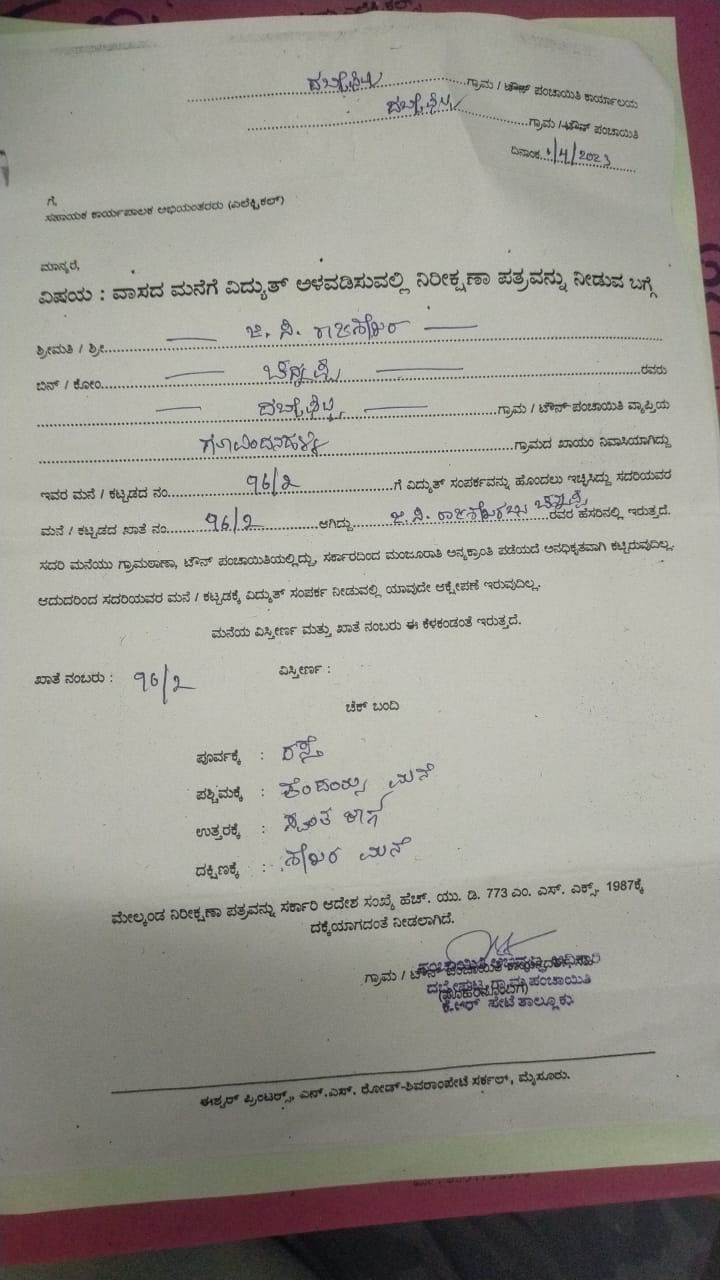 ದಬ್ಬೇಘಟ್ಟ ಗ್ರಾಮ / ಟೌನ್ ಪಂಚಾಯಿತಿ ಕಾರ್ಯಾಲಯ
ದಬ್ಬೇಘಟ್ಟ ಗ್ರಾಮ / ಟೌನ್ ಪಂಚಾಯಿತಿ
ದಿನಾಂಕ /4/2023
ಗೆ,
ಸಹಾಯಕ ಕಾರ್ಯಪಾಲಕ ಅಭಿಯಂತರರು (ಎಲೆಕ್ಟ್ರಿಕಲ್)
ಮಾನ್ಯರೆ,
ವಿಷಯ : ವಾಸದ ಮನೆಗೆ ವಿದ್ಯುತ್ ಅಳವಡಿಸುವಲ್ಲಿ ನಿರೀಕ್ಷಣಾ ಪತ್ರವನ್ನು ನೀಡುವ ಬಗ್ಗೆ
ಶ್ರೀಮತಿ / ಶ್ರೀ ಜಿ. ಸಿ. ರಾಜಶೇಖರ
ಬಿನ್ / ಕೋಂ ರವರು
ದಬ್ಬೇಘಟ್ಟ ಗ್ರಾಮ / ಟೌನ್ ಪಂಚಾಯಿತಿ ವ್ಯಾಪ್ತಿಯ
ಗೋವಿಂದನಹಳ್ಳಿ ಗ್ರಾಮದ ಖಾಯಂ ನಿವಾಸಿಯಾಗಿದ್ದು
ಇವರ ಮನೆ / ಕಟ್ಟಡದ ನಂ. 96/2 ಗೆ ವಿದ್ಯುತ್ ಸಂಪರ್ಕವನ್ನು ಹೊಂದಲು ಇಚ್ಚಿಸಿದ್ದು ಸದರಿಯವರ
ಮನೆ / ಕಟ್ಟಡದ ಖಾತೆ ನಂ. 96/2 ಆಗಿದ್ದು ಜಿ. ಸಿ. ರಾಜಶೇಖರ ಬಿನ್ ರವರ ಹೆಸರಿನಲ್ಲಿ ಇರುತ್ತದೆ.
ಸದರಿ ಮನೆಯು ಗ್ರಾಮಠಾಣಾ, ಟೌನ್ ಪಂಚಾಯಿತಿಯಲ್ಲಿದ್ದು, ಸರ್ಕಾರದಿಂದ ಮಂಜೂರಾತಿ ಅನ್ಯಕ್ರಾಂತಿ ಪಡೆಯದೆ ಅನಧಿಕೃತವಾಗಿ ಕಟ್ಟಿರುವುದಿಲ್ಲ.
ಆದುದರಿಂದ ಸದರಿಯವರ ಮನೆ / ಕಟ್ಟಡಕ್ಕೆ ವಿದ್ಯುತ್ ಸಂಪರ್ಕ ನೀಡುವಲ್ಲಿ ಯಾವುದೇ ಆಕ್ಷೇಪಣೆ ಇರುವುದಿಲ್ಲ.
ಮನೆಯ ವಿಸ್ತೀರ್ಣ ಮತ್ತು ಖಾತೆ ನಂಬರು ಈ ಕೆಳಕಂಡಂತೆ ಇರುತ್ತದೆ.
ಖಾತೆ ನಂಬರು : 96/2 ವಿಸ್ತೀರ್ಣ :
ಚೆಕ್ ಬಂದಿ
ಪೂರ್ವಕ್ಕೆ : ರಸ್ತೆ
ಪಶ್ಚಿಮಕ್ಕೆ : ಮನೆ
ಉತ್ತರಕ್ಕೆ : ಸ್ವಂತ ಜಾಗ
ದಕ್ಷಿಣಕ್ಕೆ : ಶೇಖರ ಮನೆ
ಮೇಲ್ಕಂಡ ನಿರೀಕ್ಷಣಾ ಪತ್ರವನ್ನು ಸರ್ಕಾರಿ ಆದೇಶ ಸಂಖ್ಯೆ ಹೆಚ್. ಯು. ಡಿ. 773 ಎಂ. ಎಸ್. ಎಕ್ಸ್. 1987ಕ್ಕೆ
ದಕ್ಕೆಯಾಗದಂತೆ ನೀಡಲಾಗಿದೆ.
ಪಂಚಾಯಿತಿ ಅಭಿವೃದ್ಧಿ ಅಧಿಕಾರಿ
ಗ್ರಾಮ / ಟೌನ್ ಪಂಚಾಯಿತಿ
ದಬ್ಬೇಘಟ್ಟ ಗ್ರಾಮ ಪಂಚಾಯಿತಿ
(ಮೊಹರಿನೊಂದಿಗೆ)
ಕೆ.ಆರ್ ಪೇಟೆ ತಾಲ್ಲೂಕು
ಈಶ್ವರ್ ಪ್ರಿಂಟರ್ಸ್, ಎನ್.ಎಸ್. ರೋಡ್-ಶಿವರಾಂಪೇಟೆ ಸರ್ಕಲ್, ಮೈಸೂರು.